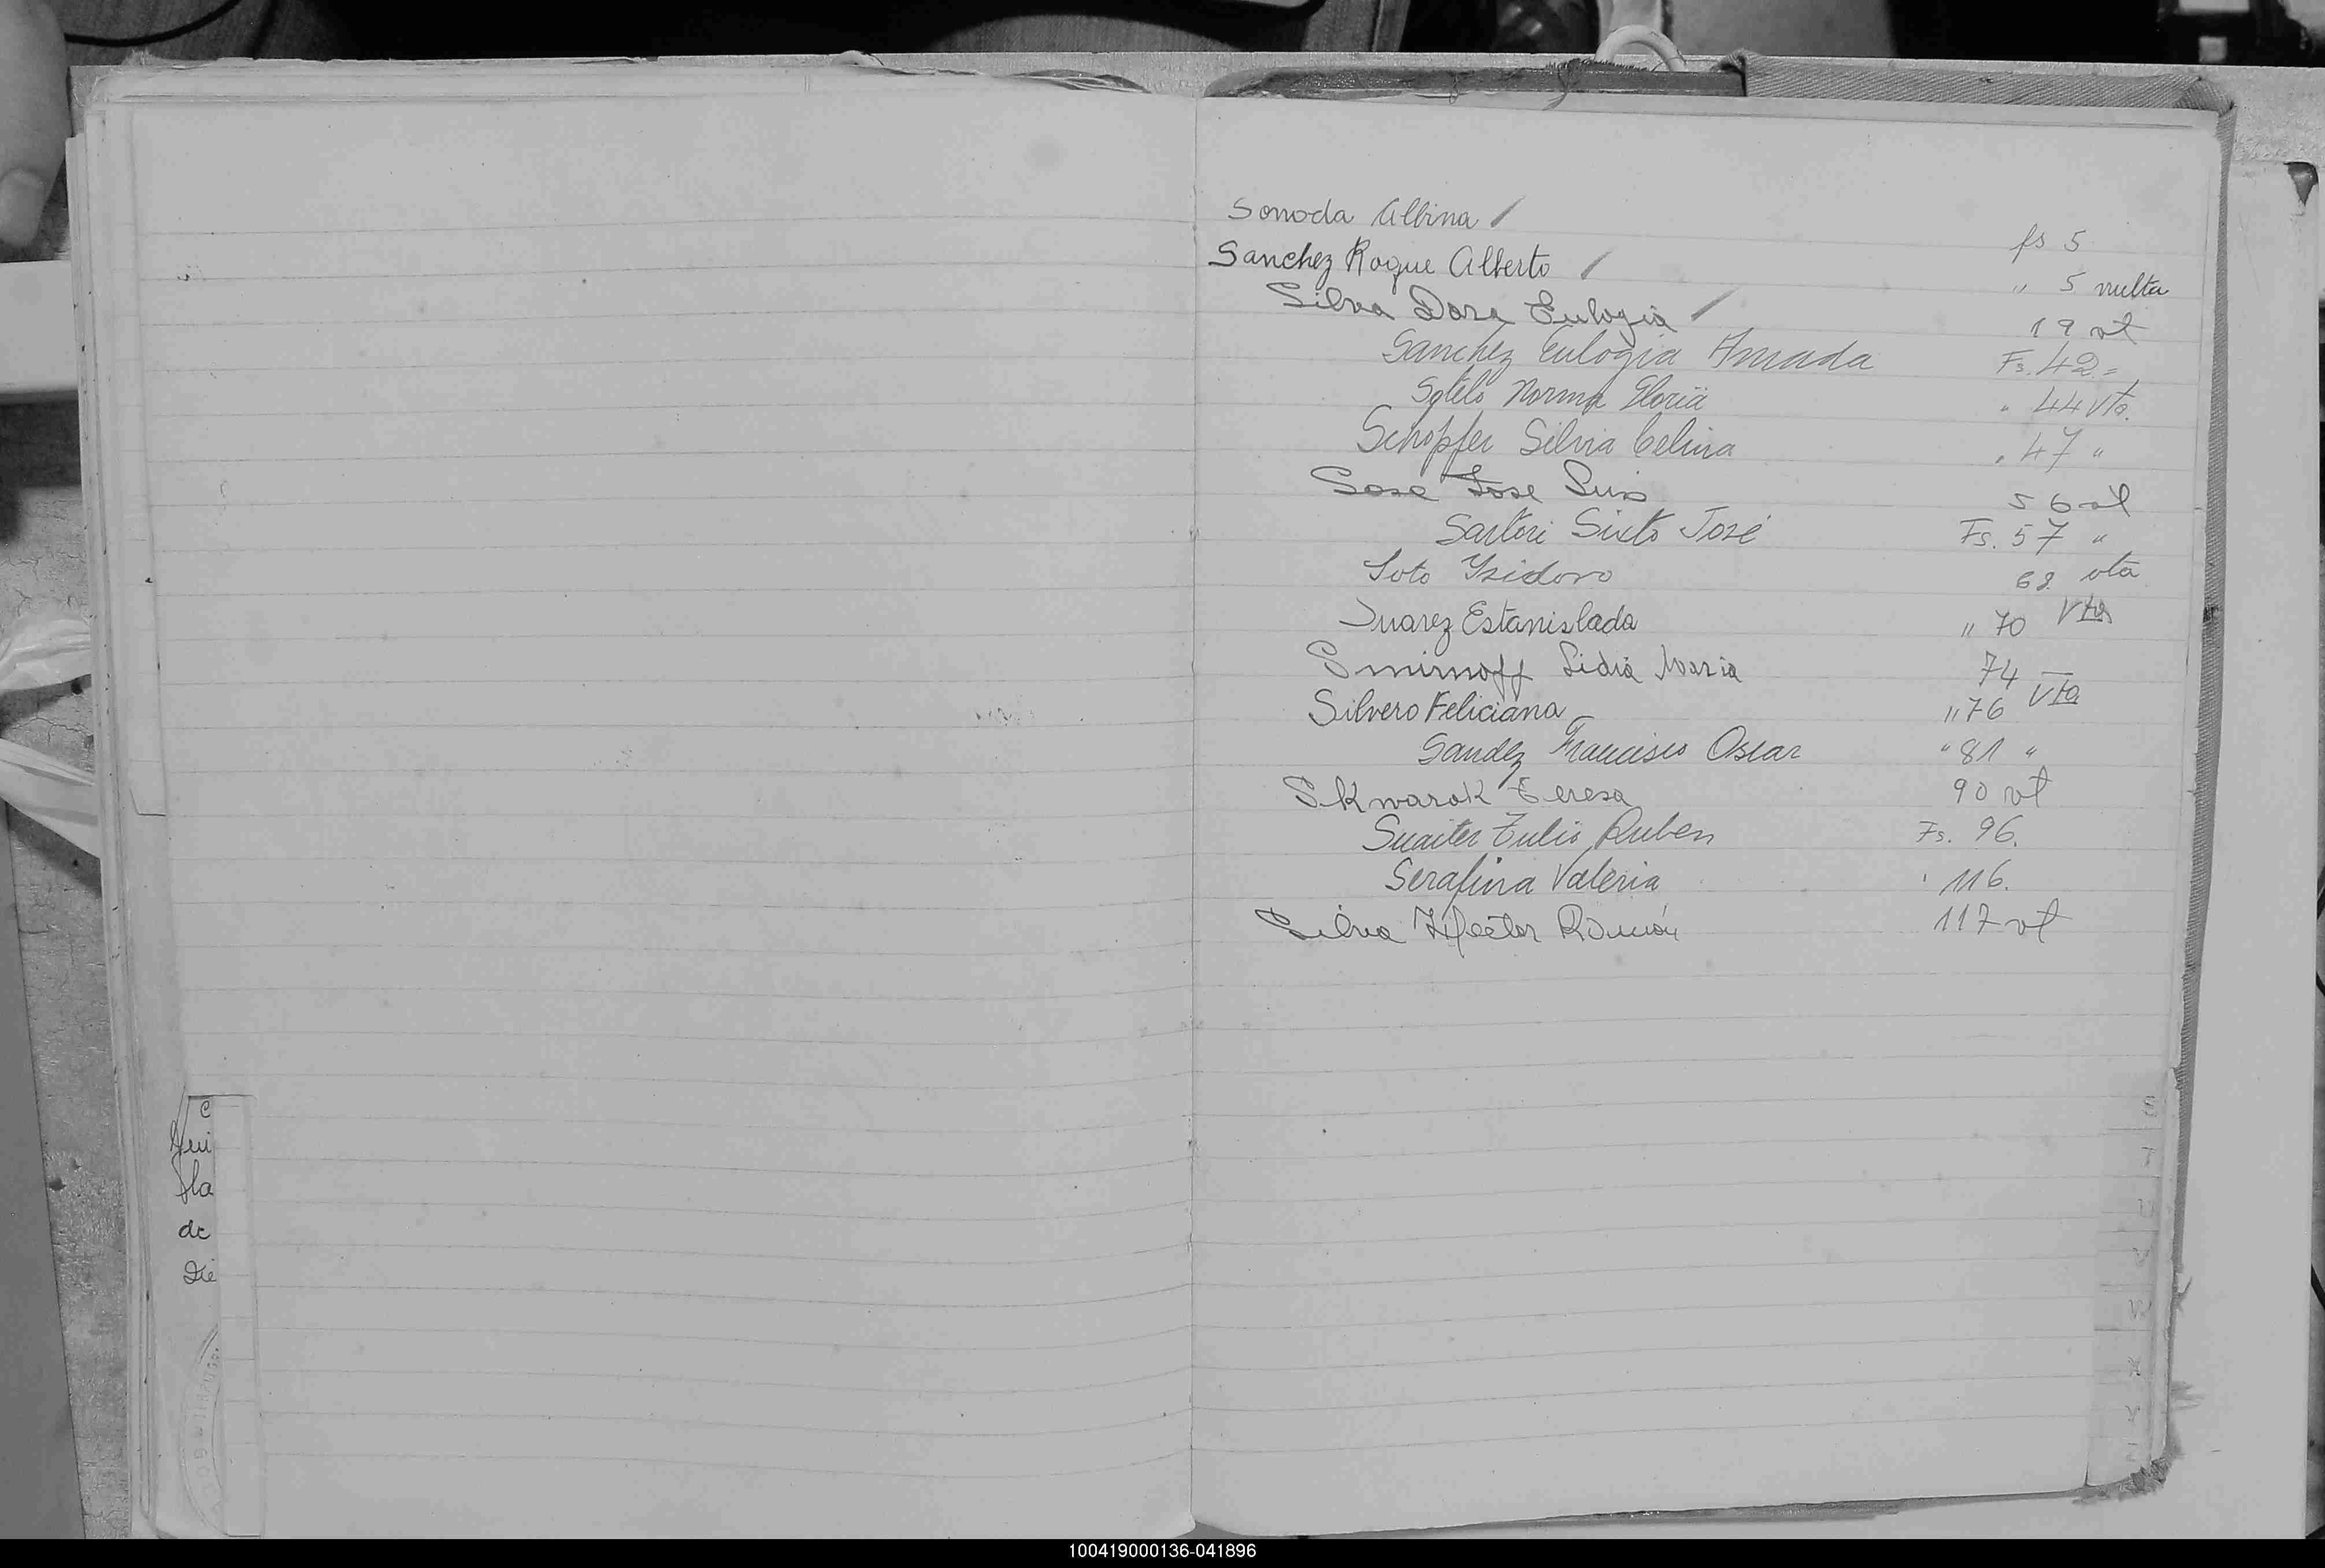 Sonoda Albina / fs 5
Sanchez Roque Alberto / " 5 vuelta
Silva Dora Eulogia / 19 vt
Sanchez Eulogia Amada Fs. 42.=
Sotelo Norma Gloria " 44 vta.
Schopfer Silvia Celina " 47 "
Sosa Jose Luis 56 vt
Sartori Sixto José Fs. 57 "
Soto Ysidoro 62 vta
Suarez Estanislada " 70 Vta
Smirnoff Lidia Maria 74 —
Silvero Feliciana " 76 Vta
Sandez Francisco Oscar " 81 "
Skwarok Teresa 90 vt
Suaiter Tulio Ruben Fs. 96.
Serafina Valeria " 116.
Silva Hector Ramón 117 vt
c
la
de
Die
S
T
100419000136-041896